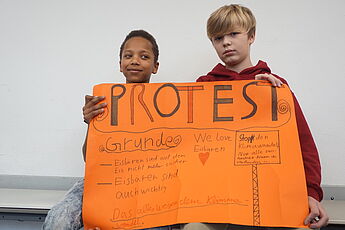 PROTEST
Gründe
We love
Eisbären
- Eisbären sind auf dem
Eis nicht mehr sicher
- Eisbären sind
auch wichtig
Das alles wegen dem Klimawa-
Stoppt den
Klimawandel
Nur alle